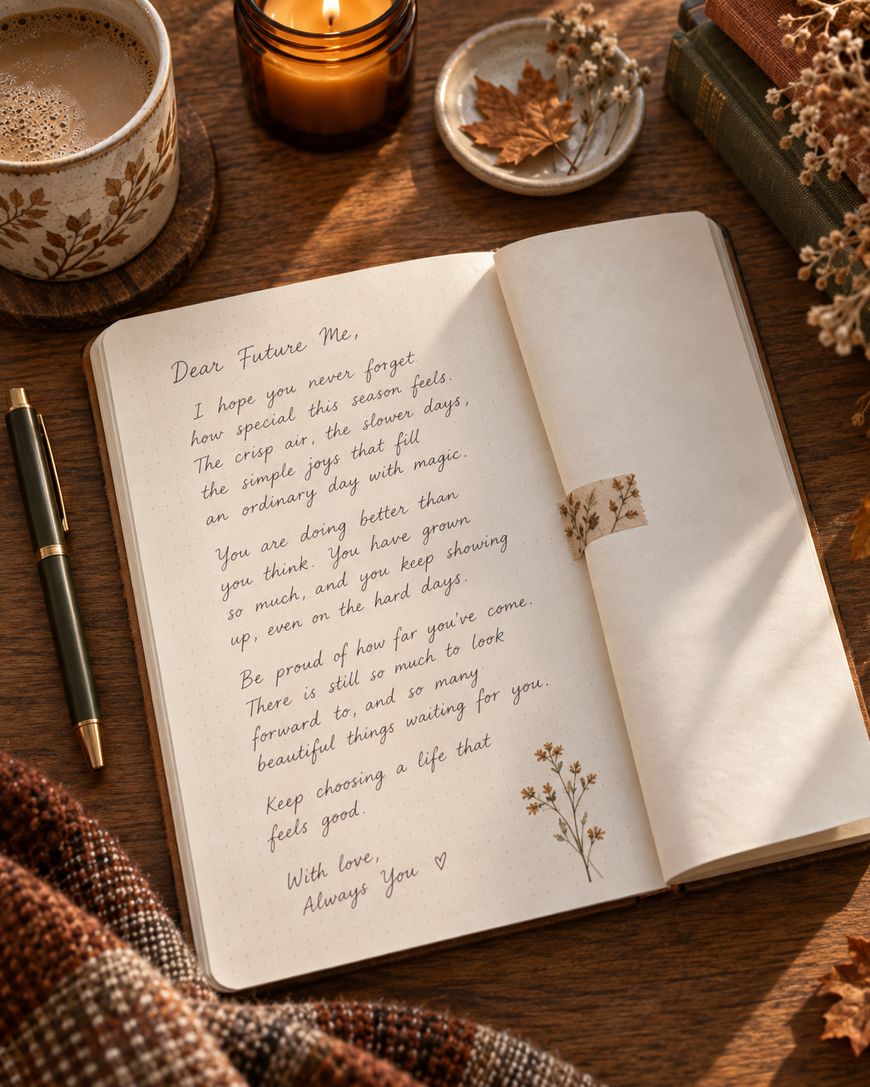 Dear Future Me,
I hope you never forget
how special this season feels.
The crisp air, the slower days,
the simple joys that fill
an ordinary day with magic.
You are doing better than
you think. You have grown
so much, and you keep showing
up, even on the hard days.
Be proud of how far you've come.
There is still so much to look
forward to, and so many
beautiful things waiting for you.
Keep choosing a life that
feels good.
With love,
Always You ♡